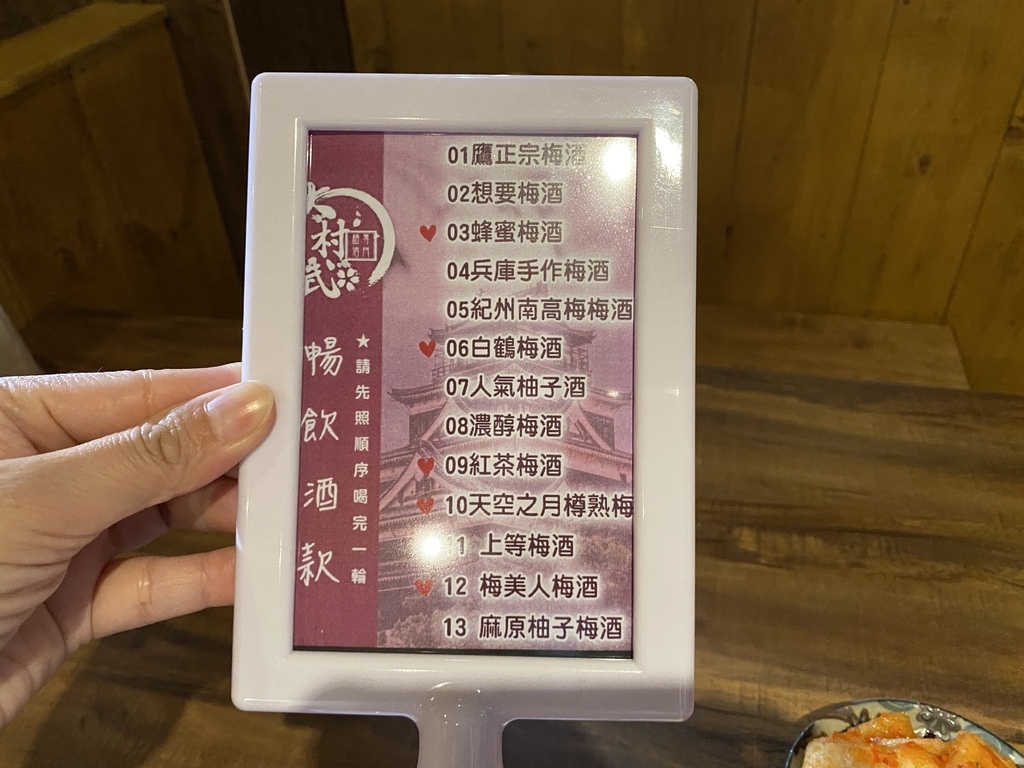 村
武
暢飲酒款
★請先照順序喝完一輪
01鷹正宗梅酒
02想要梅酒
03蜂蜜梅酒
04兵庫手作梅酒
05紀州南高梅梅酒
06白鶴梅酒
07人氣柚子酒
08濃醇梅酒
09紅茶梅酒
10天空之月樽熟梅
11 上等梅酒
12 梅美人梅酒
13 麻原柚子梅酒